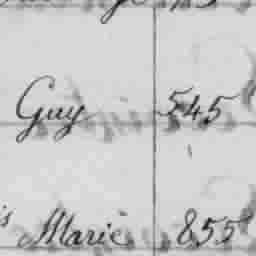 Guy 545
Marie 855